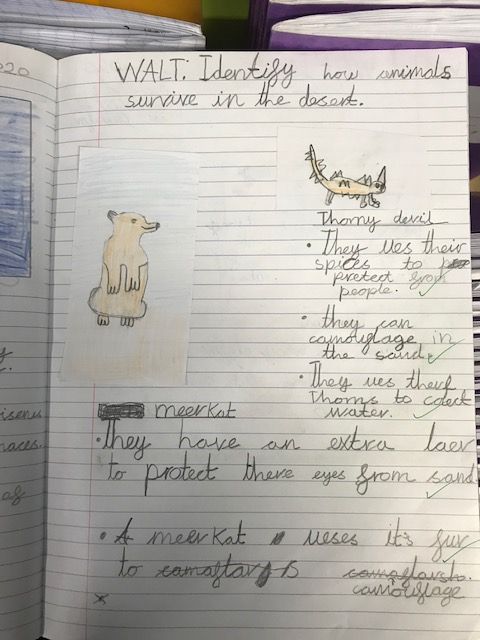 2020
WALT: Identify how animals
survive in the desert.
Thorny devil
• They ues their
spices to
pretect from
people.
• they can
camouglage in
the sand.
• They ues there
Thorns to colect
water.
meerkat
• They have an extra laer
to protect there eyes from sand
• A meerkat ueses it's fur
to camoflar s camoflarsh.
camouflage